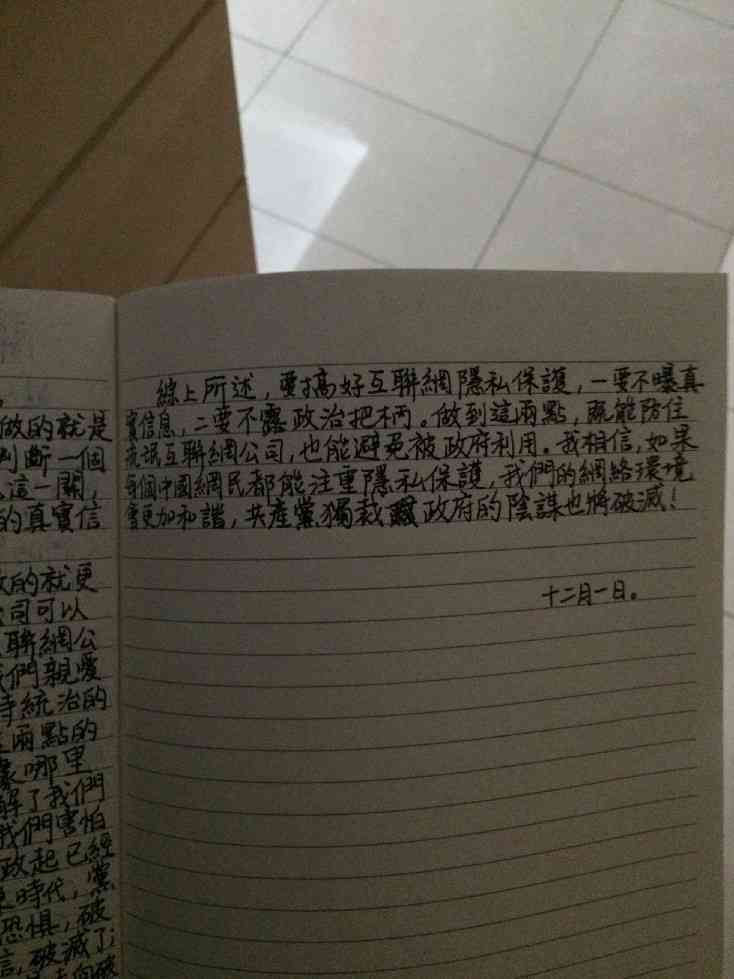 綜上所述，要搞好互聯網隱私保護，一要不曝真
實信息，二要不露政治把柄。做到這兩點，既能防住
流氓互聯網公司，也能避免被政府利用。我相信，如果
每個中國網民都能注重隱私保護，我們的網絡環境
會更加和諧，共產黨獨裁政府的陰謀也將破滅！
十二月一日。
做的就是
判斷一個
這一關，
的真實信
的就更
公司可以
聯網公
我們親愛
持統治的
兩點的
哪里
解了我們
我們害怕
政起已經
時代，黨
恐懼，破
信，破滅了；